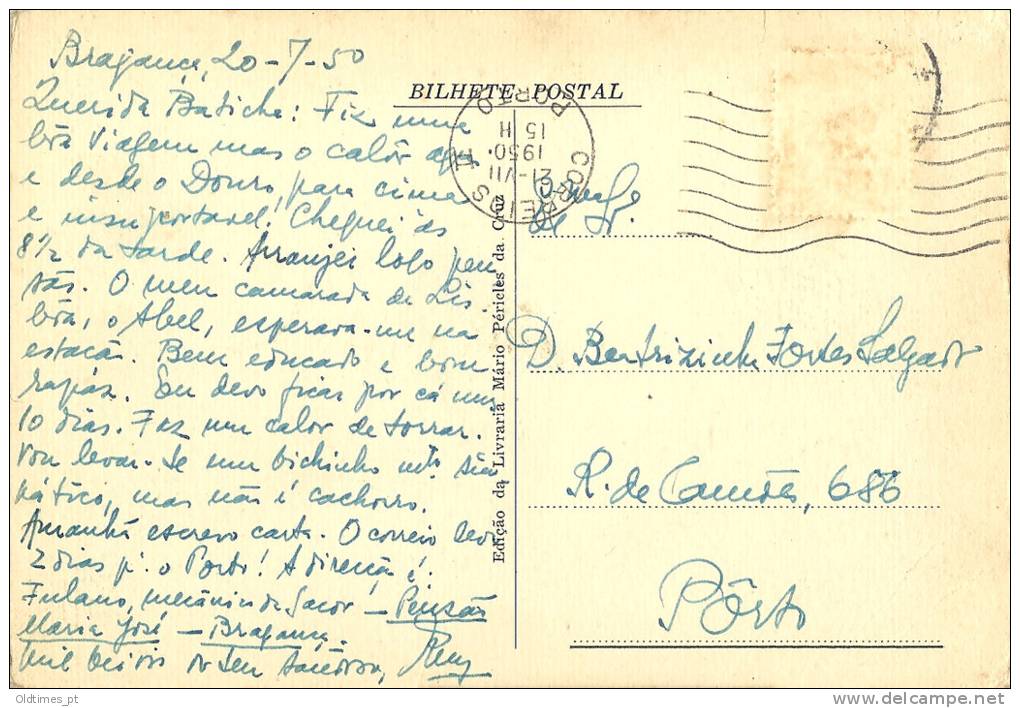 Bragança, 20-7-50
Querida Baticha: Fiz uma
bôa viagem mas o calôr aqui
e desde o Douro, para cima
e insuportavel! Cheguei ás
8 1/2 da tarde. Arranjei logo pen
são. O meu camarada de Lis
bôa, o Abel, esperava-me na
estação. Bem educado e bom
rapáz. Eu devo ficar por cá uns
10 dias. Faz um calor de torrar.
Vou levar-te um bichinho mto sim
pático, mas não é cachorro.
Amanhã escrevo carta. O correio leva
2 dias p. o Porto! A direção é:
Fulano, mecânico da Sacor - Pensão
Maria José - Bragança.
Mil beijos do teu
Ruy
BILHETE POSTAL
CORREIOS
PORTO
21-VII
1950
15 H
Edição da Livraria Mário Péricles da Cruz
D. Beatrizinha Fortes Salgado
R. de Camões, 686
Pôrto
Oldtimes_pt
delcampe.net